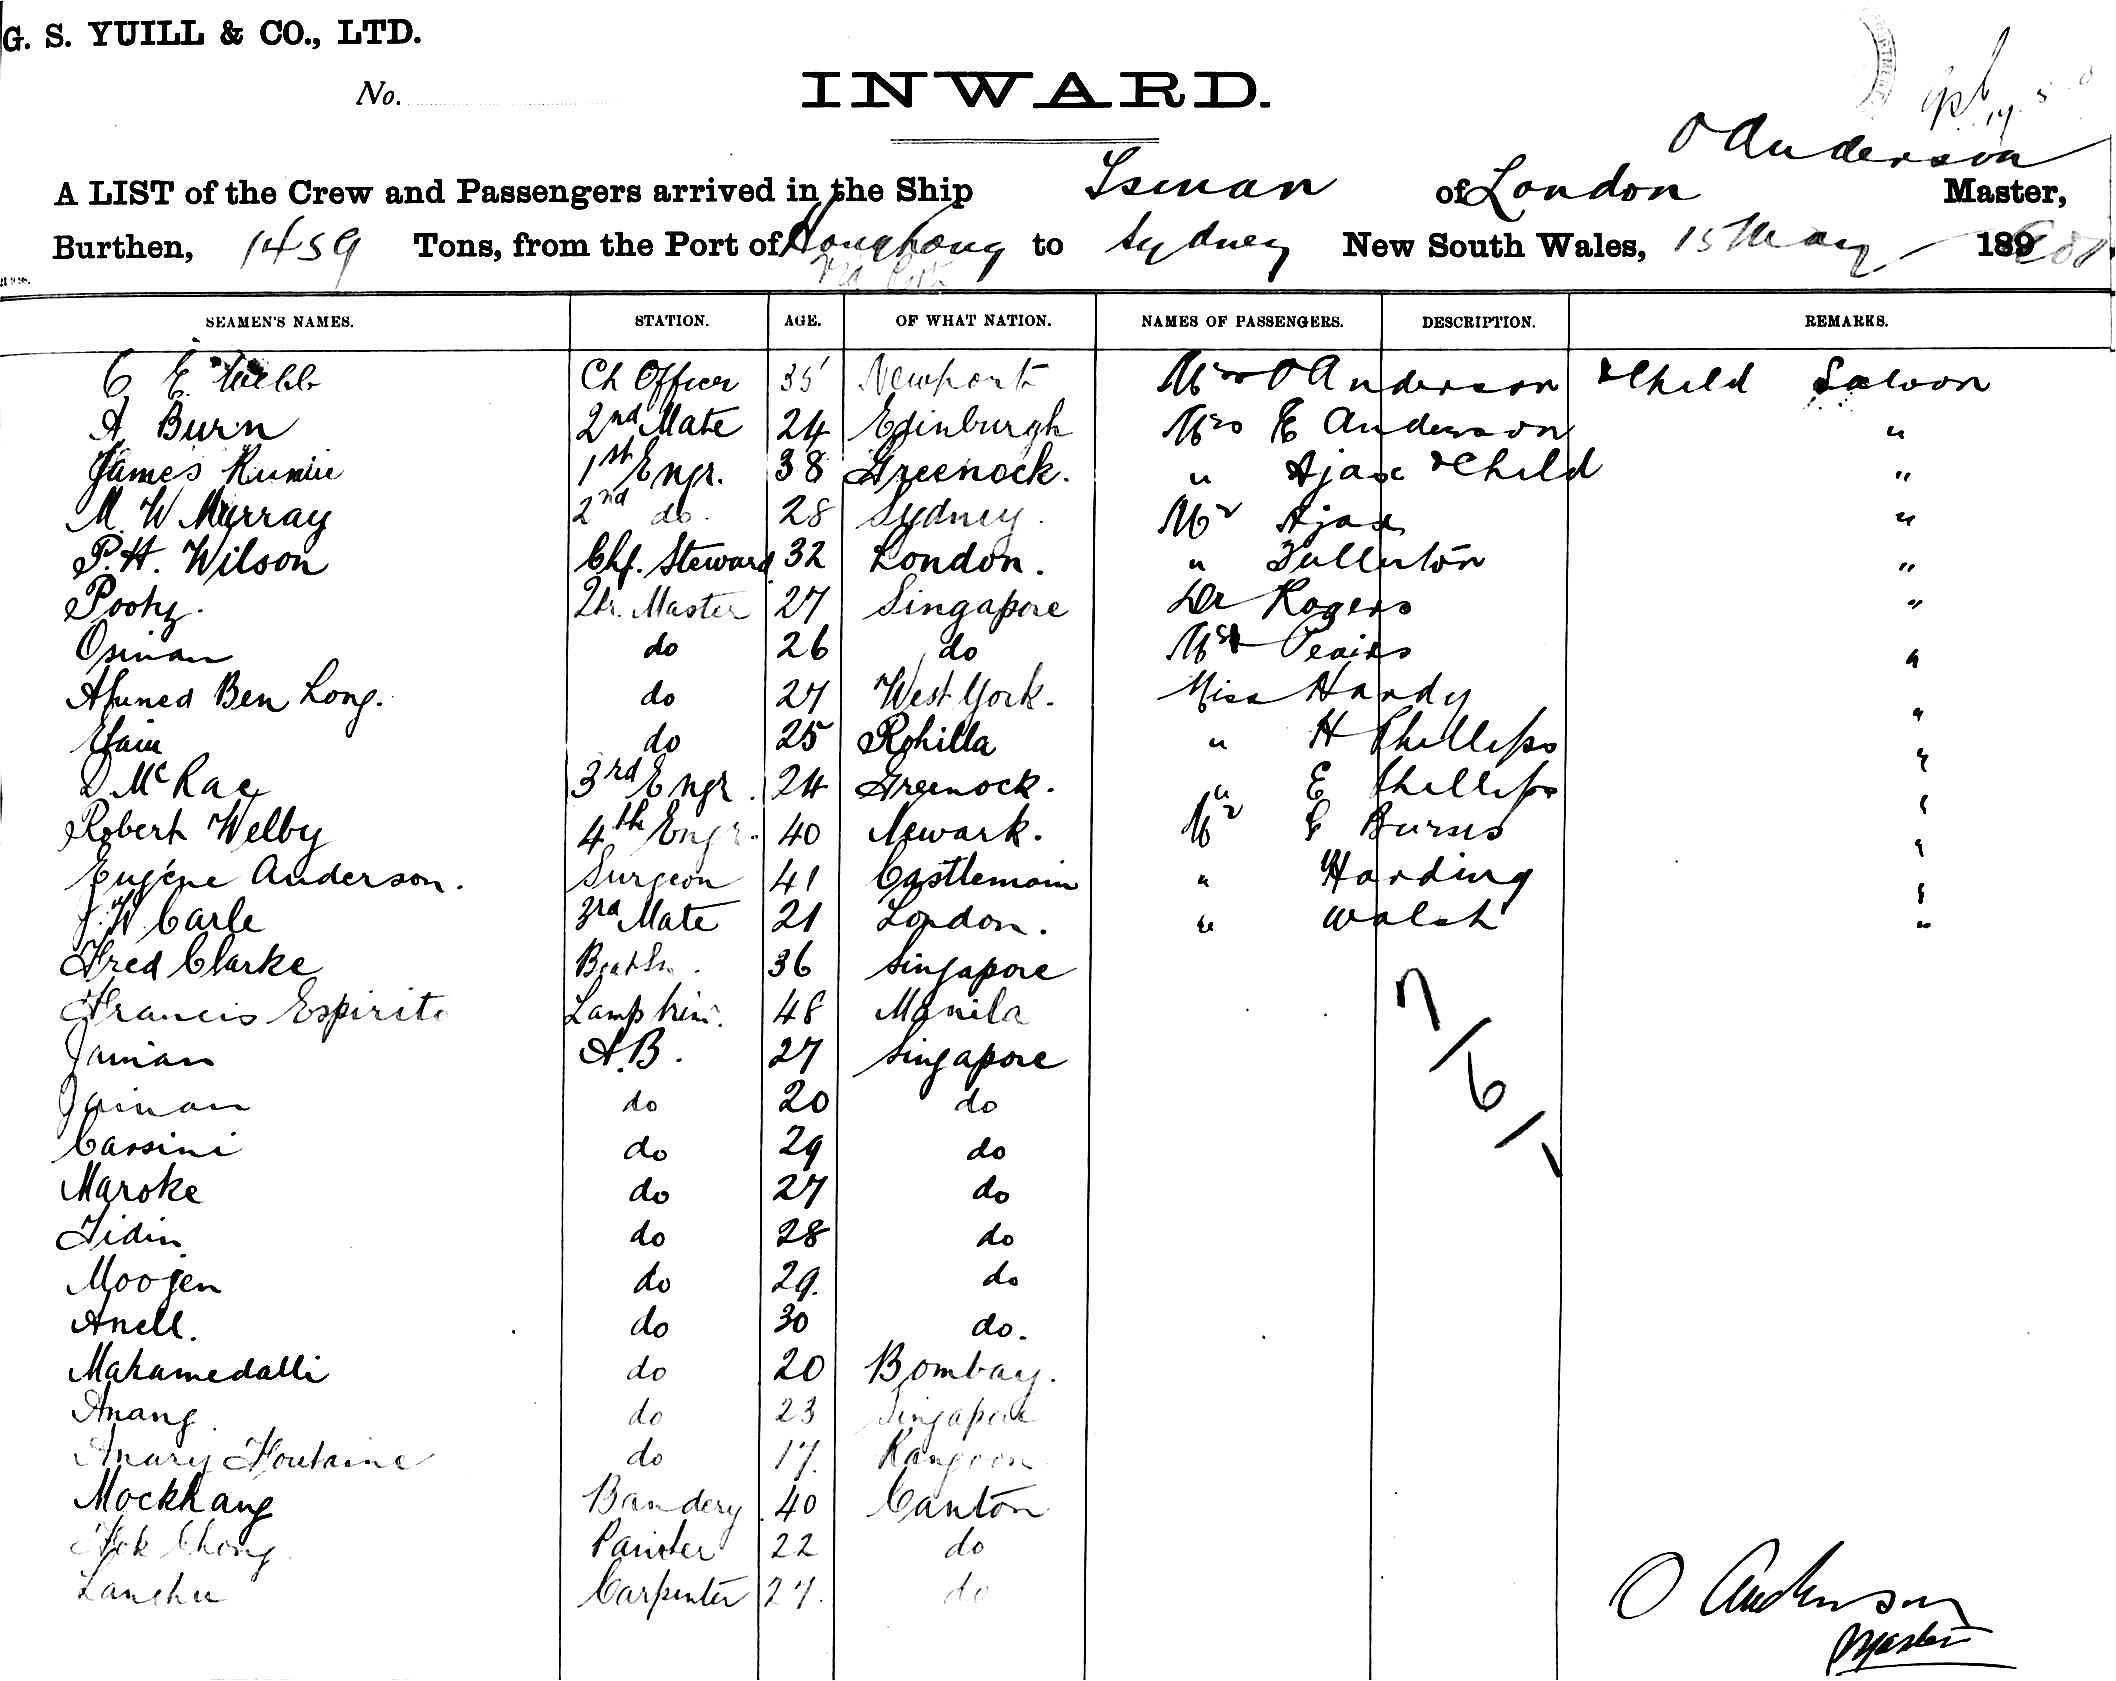 G. S. YUILL & CO., LTD.
No.
INWARD.
O Anderson
A LIST of the Crew and Passengers arrived in the Ship Tsinan of London Master,
Burthen, 1459 Tons, from the Port of Hongkong to Sydney New South Wales, 15 May 189
SEAMEN'S NAMES. STATION. AGE. OF WHAT NATION. NAMES OF PASSENGERS. DESCRIPTION. REMARKS.
C E Webb Ch Officer 35 Newport Mrs O Anderson & Child Saloon
A Burn 2nd Mate 24 Edinburgh Mrs E Anderson "
James 1st Engr. 38 Greenock. " Ajax & Child "
M. W Murray 2nd do. 28 Sydney. Mr Ajax "
P. H. Wilson Chf. Steward 32 London. " Fullerton "
Qtr. Master 27 Singapore Dr Rogers "
Osman do 26 do "
Ahmed Ben Long. do 27 West York. Miss Hardy "
do 25 Rohilla " H Phillips "
D McRae 3rd Engr. 24 Greenock. " E Phillips "
Robert Welby 4th Engr. 40 Newark. Mr Burns "
Eugene Anderson. Surgeon 41 Castlemain " Harding "
J. W Carle 3rd Mate 21 London. " Walsh "
Fred Clarke 36 Singapore
Francis Espirito Lamp trim. 48 Manila
Jainan A.B. 27 Singapore
Jainan do 20 do
Cassini do 29 do
Maroke do 27 do
Tidin do 28 do
Moojen do 29. do
Anell. do 30 do.
Mahamedalli do 20 Bombay.
Anang do 23 Singapore
Amary Houtaine do 17. Rangoon
Mockhang Bandery 40 Canton
Hok Chong Painter 22 do
Lanchu Carpenter 27. do
7/6/1
O Anderson
Master